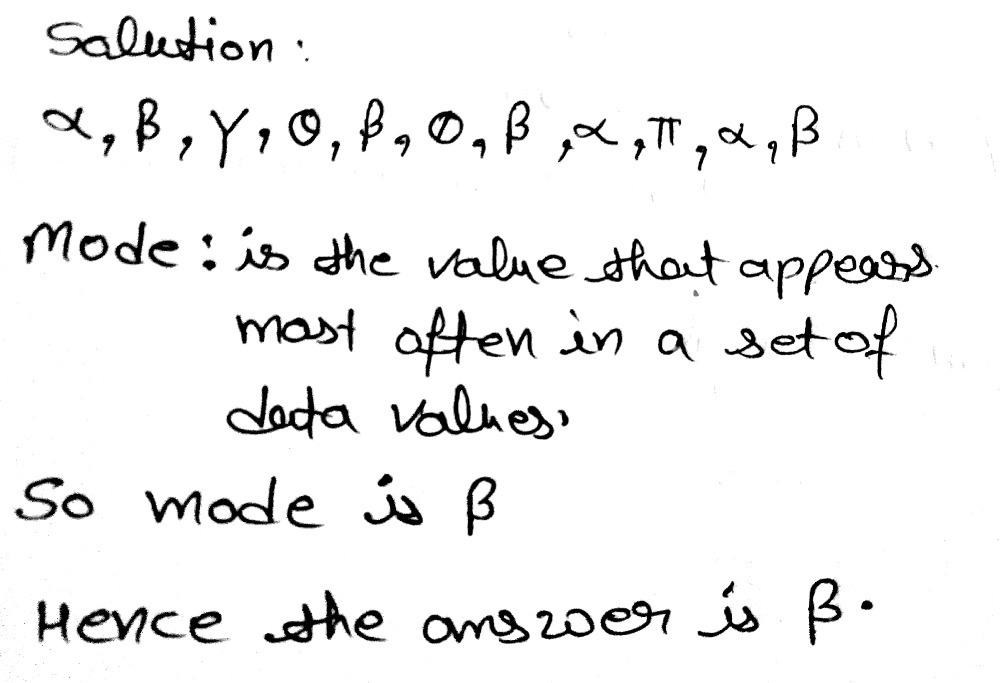 Salution :
α, β, γ, θ, β, θ, β, α, π, α, β
Mode : is the value that appears
most often in a set of
data values.
So mode is β
Hence the answer is β.